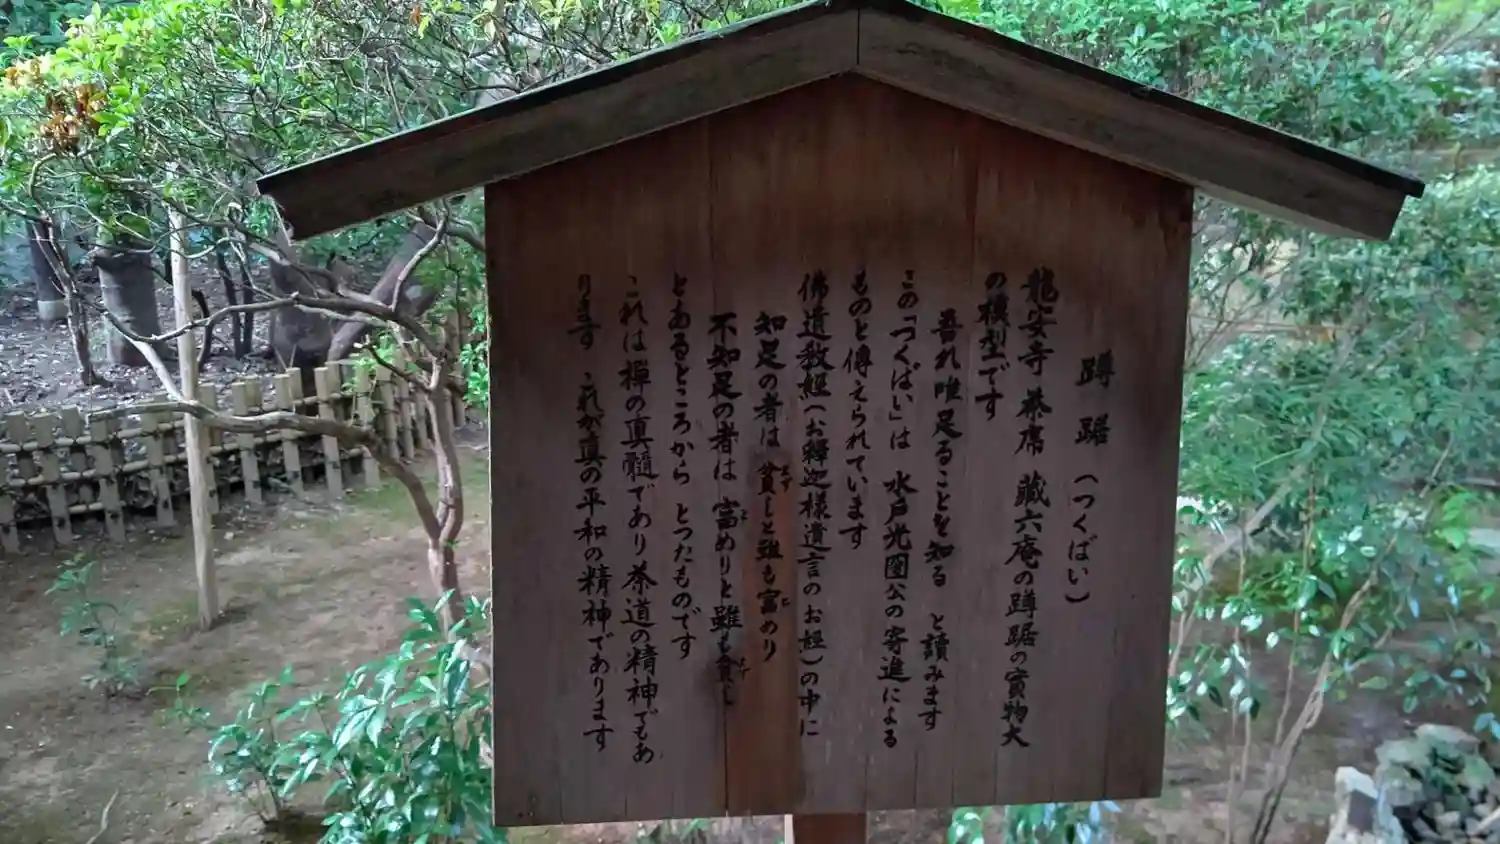 蹲踞（つくばい）
龍安寺 茶席 蔵六庵の蹲踞の實物大
の模型です
吾れ唯足ることを知る と讀みます
この「つくばい」は 水戸光圀公の寄進による
ものと傳えられています
佛遺教経（お釋迦様遺言のお経）の中に
知足の者は 貧しと雖も富めり
不知足の者は 富めりと雖も貧し
とあるところから とつたものです
これは禅の真髄であり茶道の精神でもあ
ります これが真の平和の精神であります